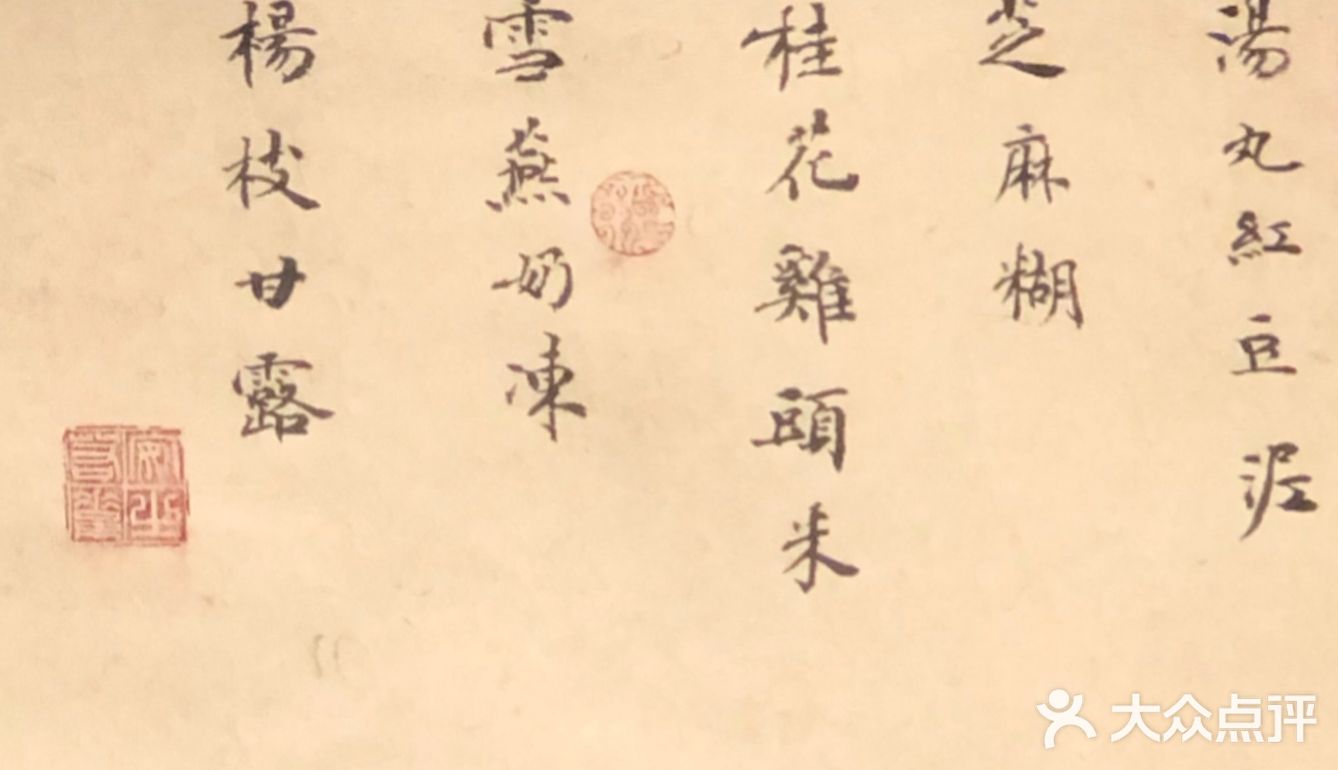 湯丸紅豆泥
芝麻糊
桂花雞頭米
雪燕奶凍
楊枝甘露
大众点评